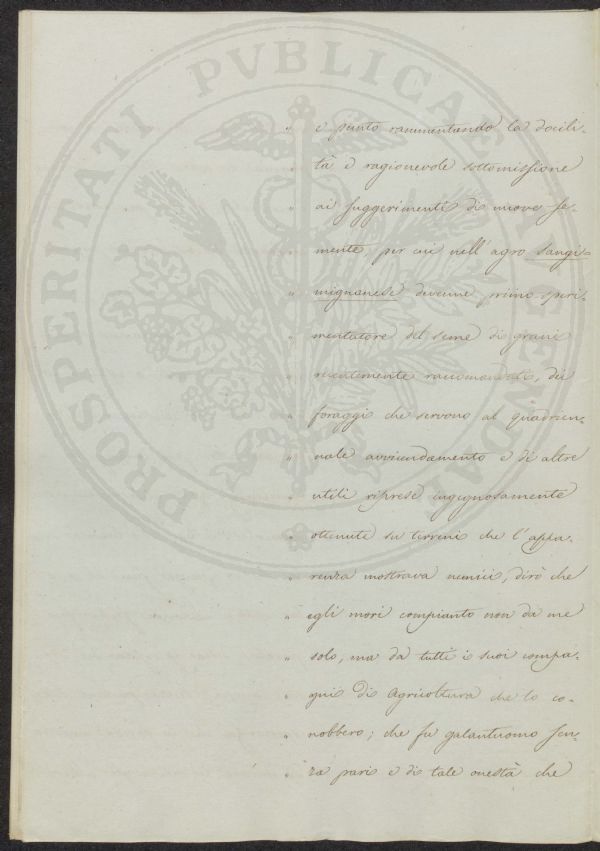 PROSPERITATI PUBLICAE AUGENDAE
" e punto rammentando la docili-
" tà e ragionevole sottomissione
" ai suggerimenti di nuove se-
" mente per cui nell'agro sangi-
" mignanese devenne primo speri-
" mentatore del seme di grani
" recentemente raccomandati, dei
" foraggi che servono al quadrien-
" nale avvicendamento e di altre
" utili riprese ingegnosamente
" ottenute su terreni che l'appa-
" renza mostrava nemici, dirò che
" egli morì compianto non da me
" solo, ma da tutti i suoi compa-
" gni di Agricoltura che lo co-
" nobbero; che fu galantuomo sen-
" za pari e di tale onestà che